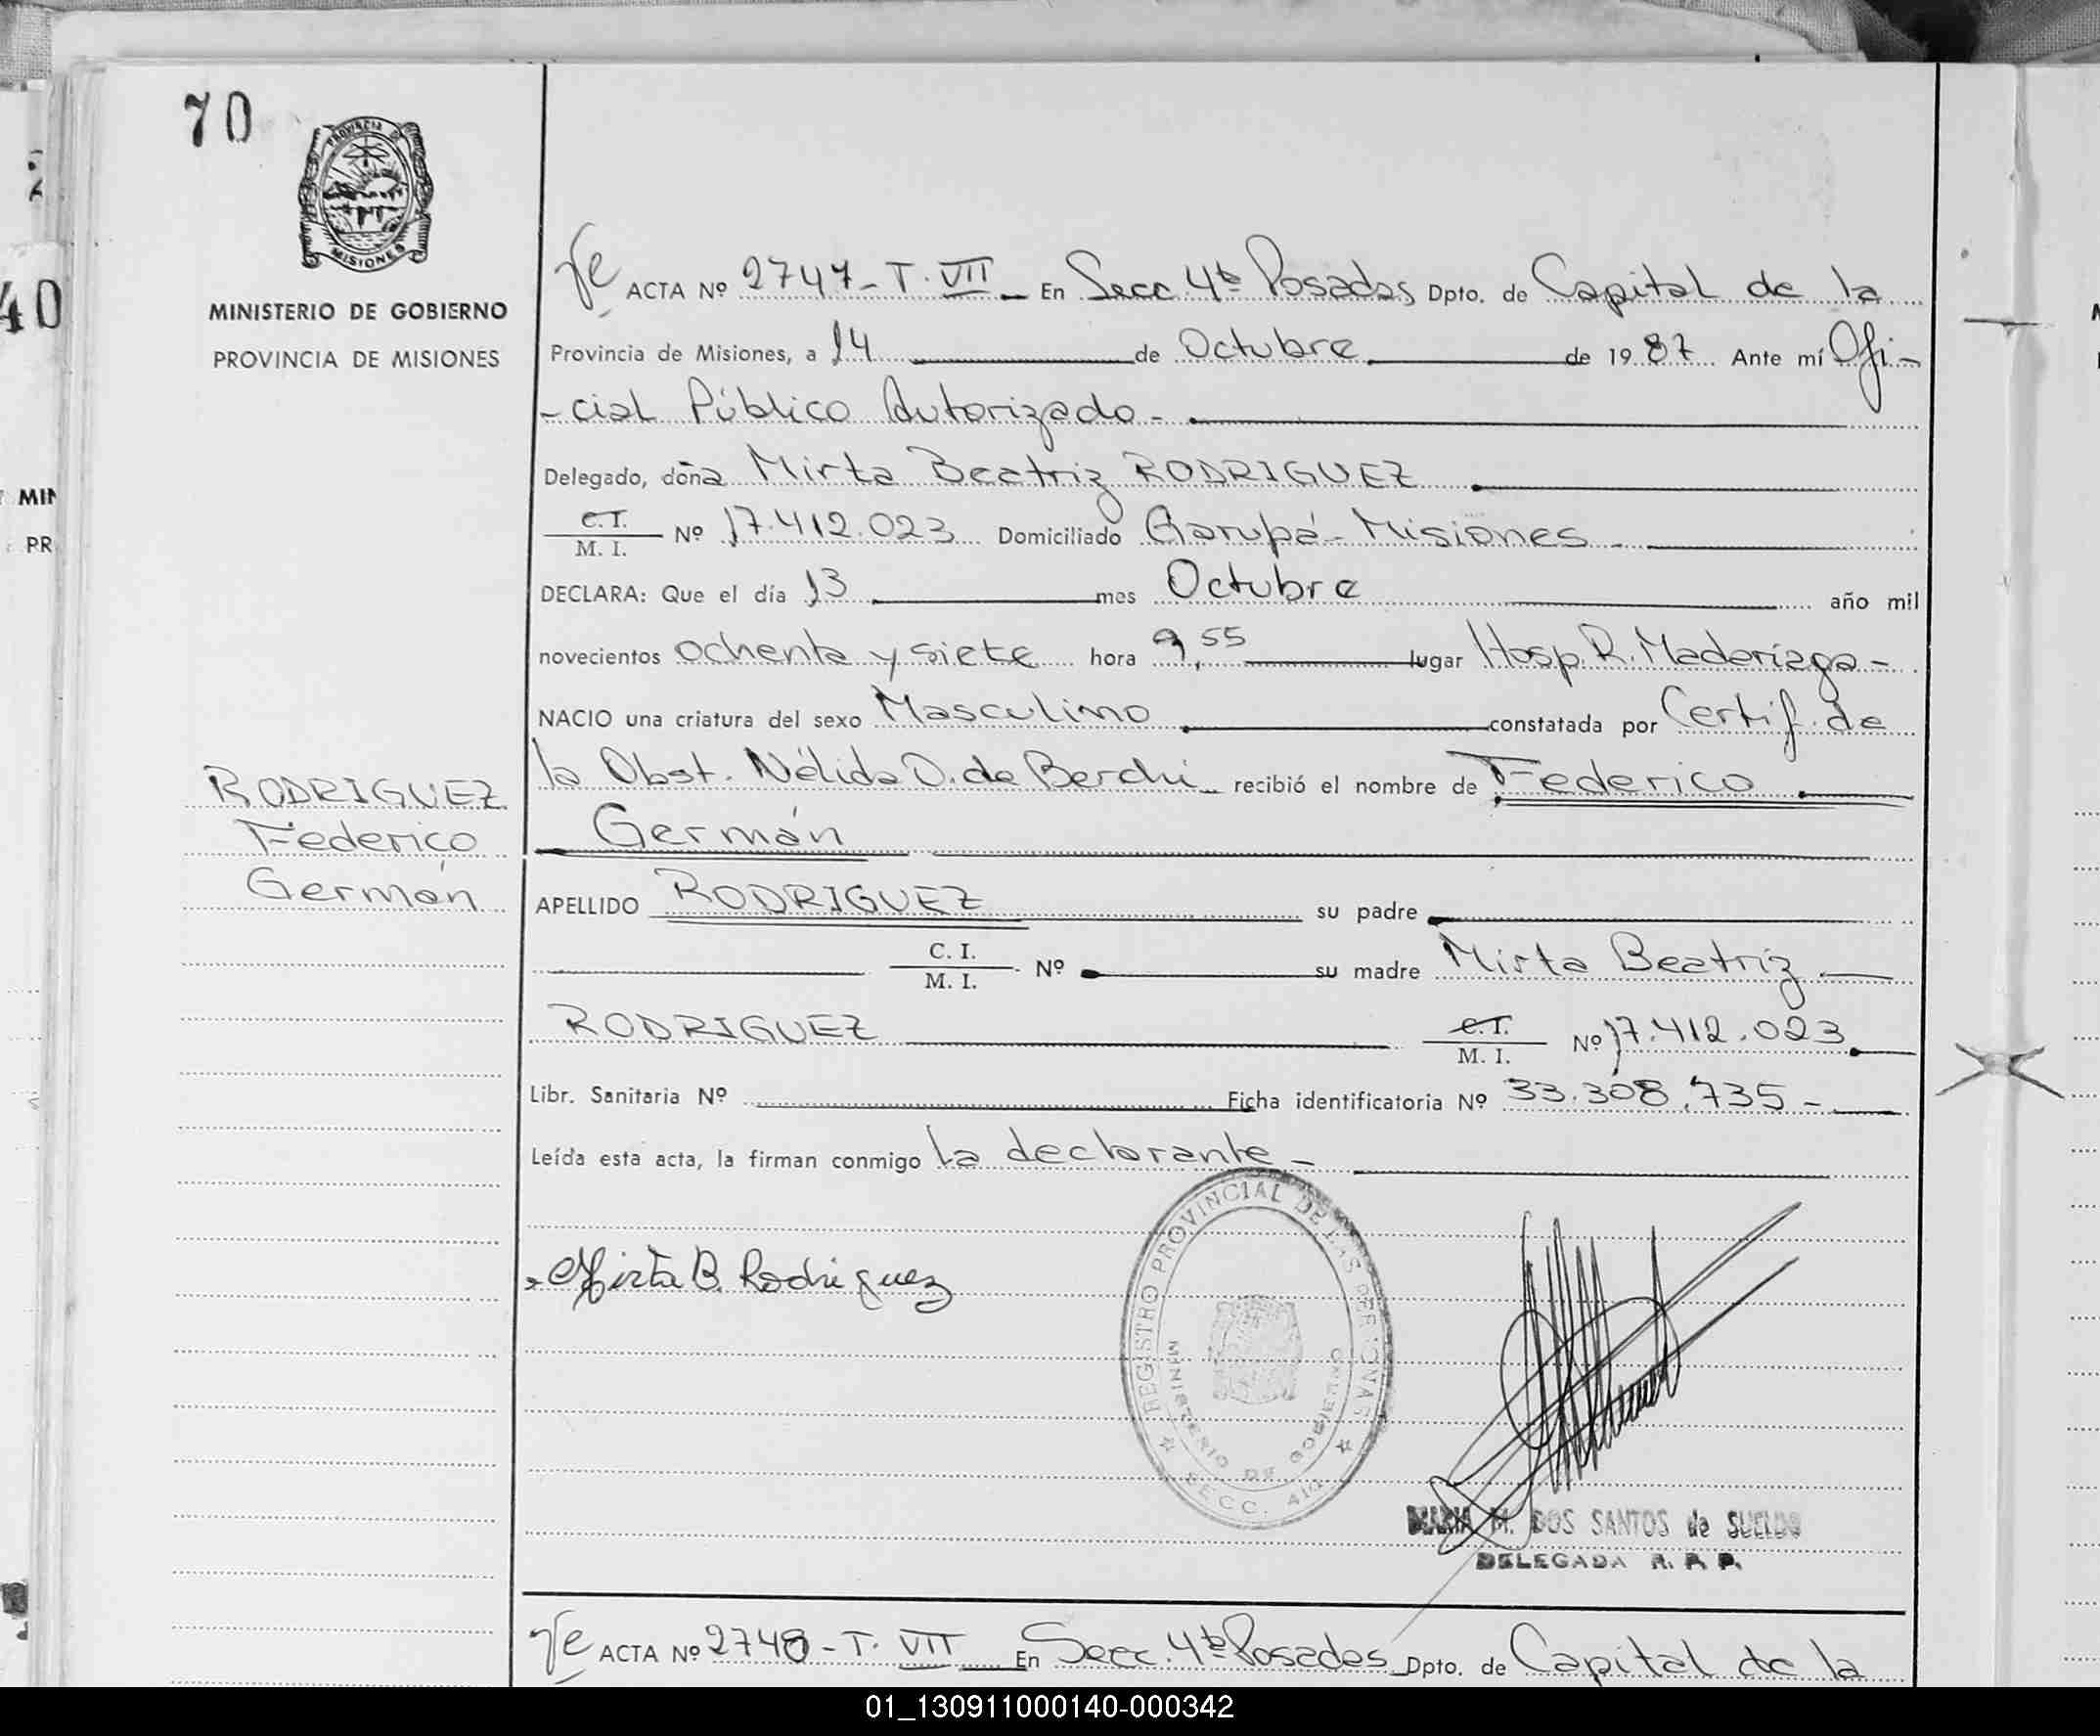 70
PROVINCIA DE
MISIONES
MINISTERIO DE GOBIERNO
PROVINCIA DE MISIONES
40
MIN
PR
RODRIGUEZ
Federico
Germán
ACTA Nº 2747 - T. VII - En Secc. 4ta Posadas Dpto. de Capital de la
Provincia de Misiones, a 14 de Octubre de 1987. Ante mí Ofi-
-cial Público Autorizado -
Delegado, doña Mirta Beatriz RODRIGUEZ
C.I. / M. I. Nº 17.412.023 Domiciliado Garupá - Misiones -
DECLARA: Que el día 13 mes Octubre año mil
novecientos ochenta y siete hora 9,55 lugar Hosp. R. Madariaga -
NACIO una criatura del sexo Masculino constatada por Certif. de
la Obst. Nélida O. de Berchi recibió el nombre de Federico
Germán
APELLIDO RODRIGUEZ su padre
C. I. / M. I. Nº su madre Mirta Beatriz
RODRIGUEZ C.I. / M. I. Nº 17.412.023
Libr. Sanitaria Nº Ficha identificatoria Nº 33.308.735 -
Leída esta acta, la firman conmigo la declarante -
Mirta B. Rodriguez
REGISTRO PROVINCIAL DE LAS PERSONAS
MINISTERIO DE GOBIERNO
SECC. 4ta
MARIA M. DOS SANTOS de SUELDO
DELEGADA R. P. P.
ACTA Nº 2748 - T. VII En Secc. 4ta Posadas Dpto. de Capital de la
01_130911000140-000342